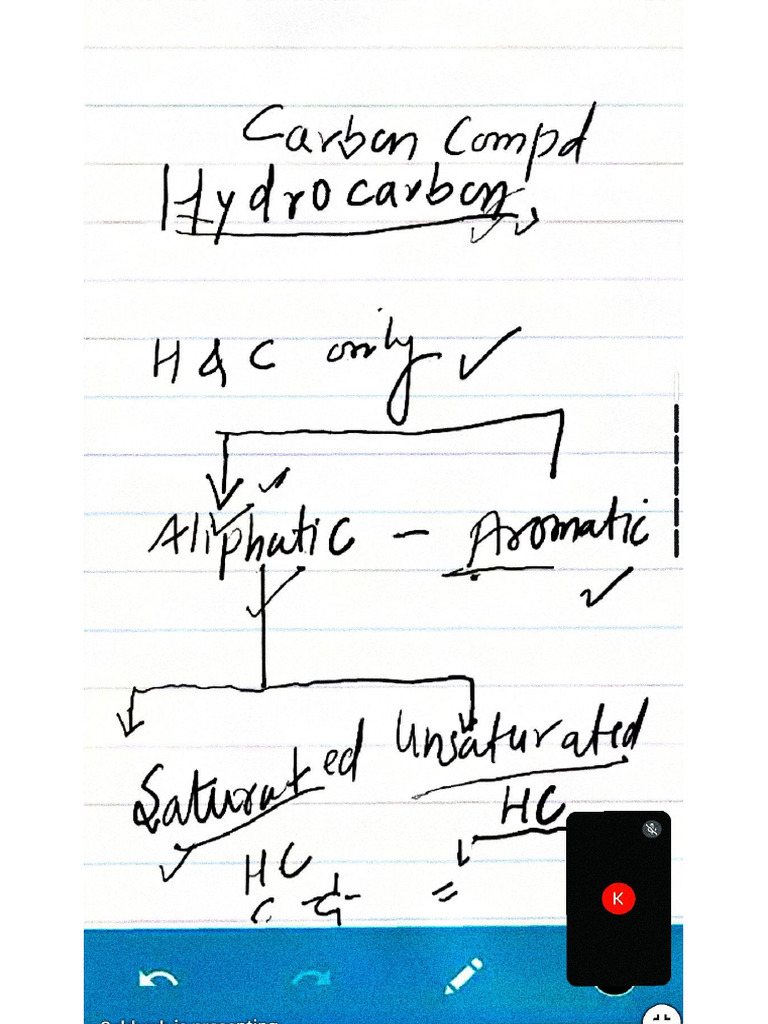 Carbon Compd
Hydrocarbon
H & C only
Aliphatic - Aromatic
Saturated Unsaturated
HC
HC
C - C - =
K